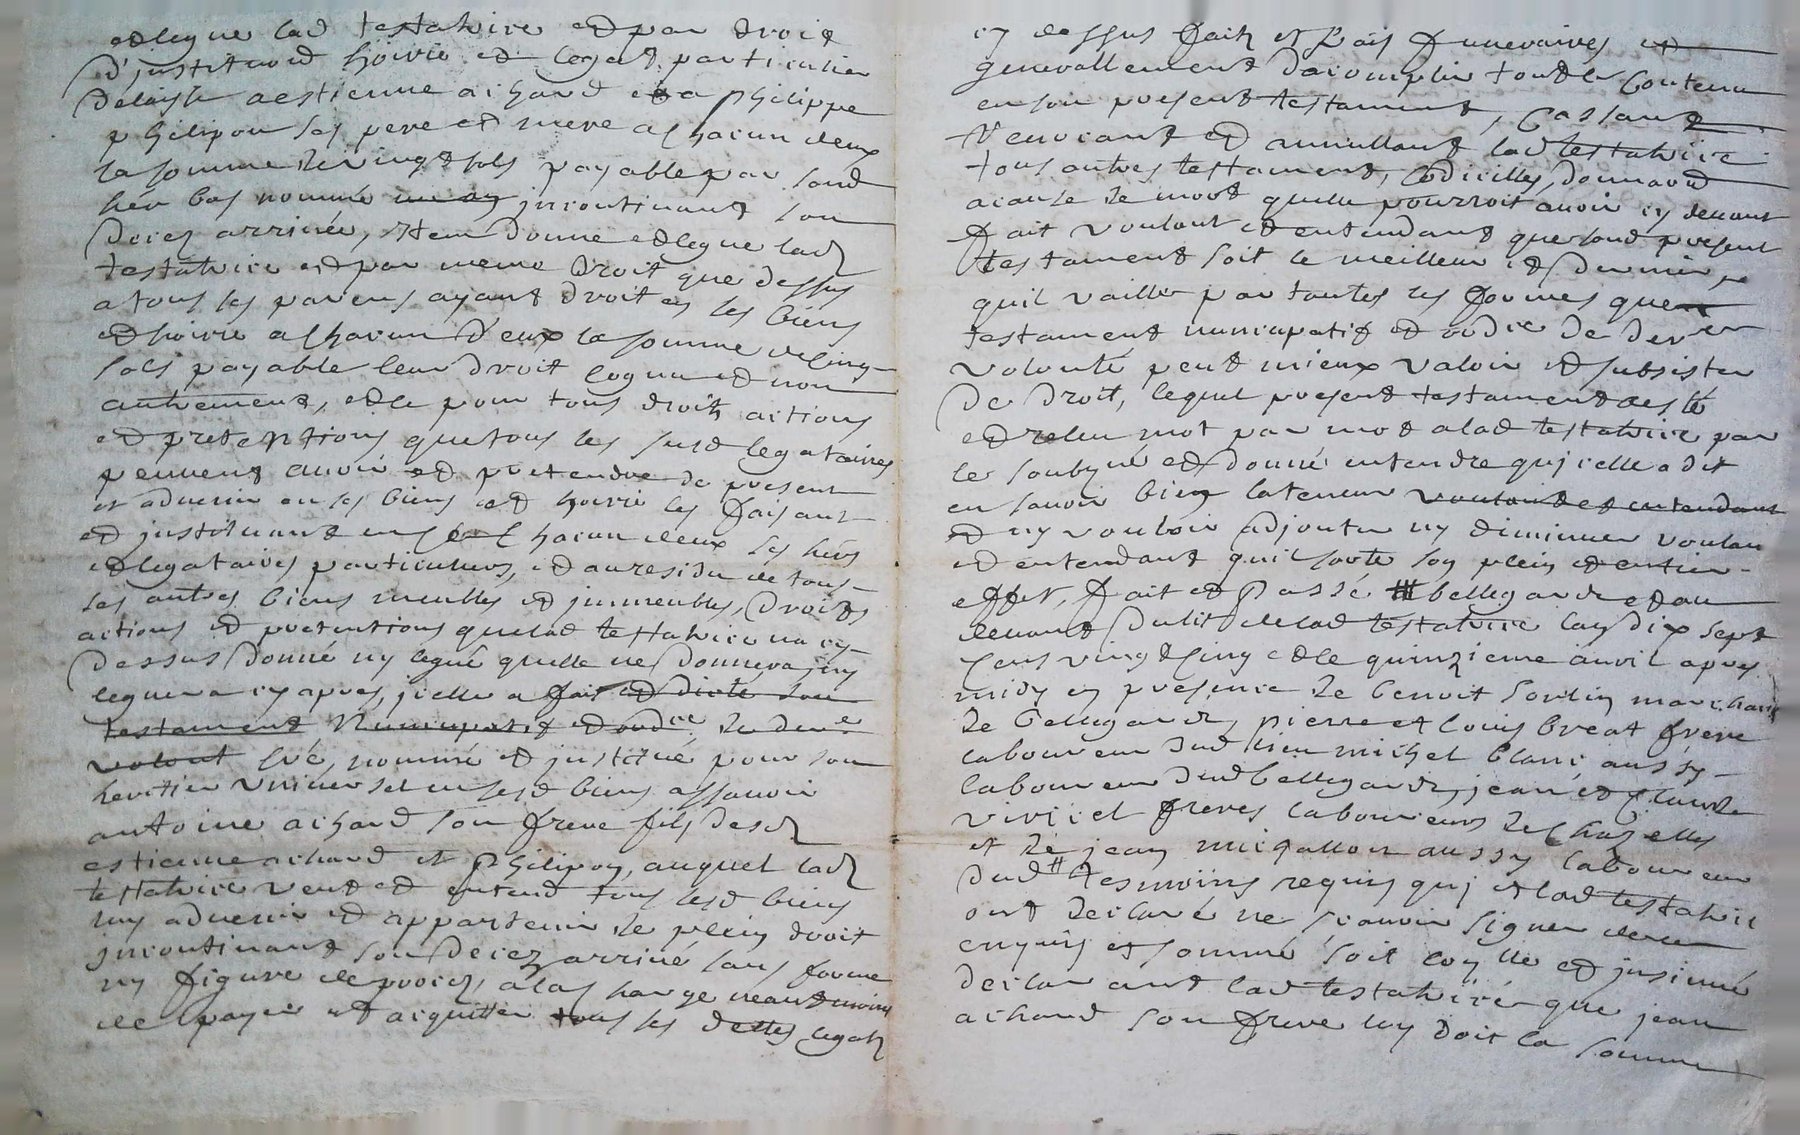 et legue lad testatrice et par droit
d'institaõn hoirie et legat particulier
delaisse a estienne achard et a philippe
philipon ses pere et mere a chacun deux
la somme de vingt sols payable par sond
hér bas nommé incontinant son
decez arrivée, Item donne et legue lad
testatrice et par meme droit que dessus
a tous ses parens ayant droit en ses biens
et hoirie a chacun d'eux la somme de cinq
sols payable leur droit cognu et non
autrement, et ce pour tous droits actions
et pretentions que tous les susd legataires
peuvent avoir et pretendre de present
et advenir en ses biens et hoirie les faisant
et instituant en ce chacun deux ses hérs
et legataires particuliers, et au residu de tous
ses autres biens meubles et immeubles, droits
actions et pretentions que lad testatrice na cy
dessus donné ny legué quelle ne donnera, ny
leguera cy apres, icelle a fait et dicté son
testament Nuncupatif et ordre de dere
volonté, nommé et institué pour son
heritier universel en sesd biens assavoir
antoine achard son frere fils desd
estienne achard et philipon, auquel lad
testatrice veut et entend tous sesd biens
luy advenir et appartenir de plein droit
incontinant son decez arrivé sans forme
ny figure de procez, a la charge neantmoins
de payer et acquitter tous ses dettes legats
cy dessus faits et frais funeraires et
generallement dacomplir tout le Contenu
en son present testament, Cassant
revocant et annullant lad testatrice
tous autres testament, Codicilles, donnaõn
a cause de mort quelle pourroit avoir cy devant
fait voulant et entendant que sond present
testament soit le meilleur et dernier,
quil vaille par toutes les formes que
testament nuncupatif et ordre de derer
volonté peut mieux valoir et subsister
De Droit, lequel present testament a esté
et releu mot par mot a lad testatrice par
le soubzné et donné entendre qui icelle a dit
en savoir bien la teneur voulant et entendant
et ny vouloir adjouter ny diminuer voulan
et entendant quil sorte son plein et entier
effet, fait et Passé a bellegarde et au
devant du lit de lad testatrice lan dix sept
cens vingt cinq et le quinzieme avril apres
midy en presence de benoit sordin marchand
de bellegarde, pierre et louis breat frere
laboureur dud lieu michel blanc aussy
laboureur dud bellegarde, jean et claude
viricel freres laboureurs de chazelles
et de jean michallon aussy laboureur
dud tesmoins requis qui et lad testatrice
ont declaré ne scavoir signer de ce
enquis et sommé soit coñlle et insinué
declarant lad testatrice que jean
achard son frere luy doit la somme